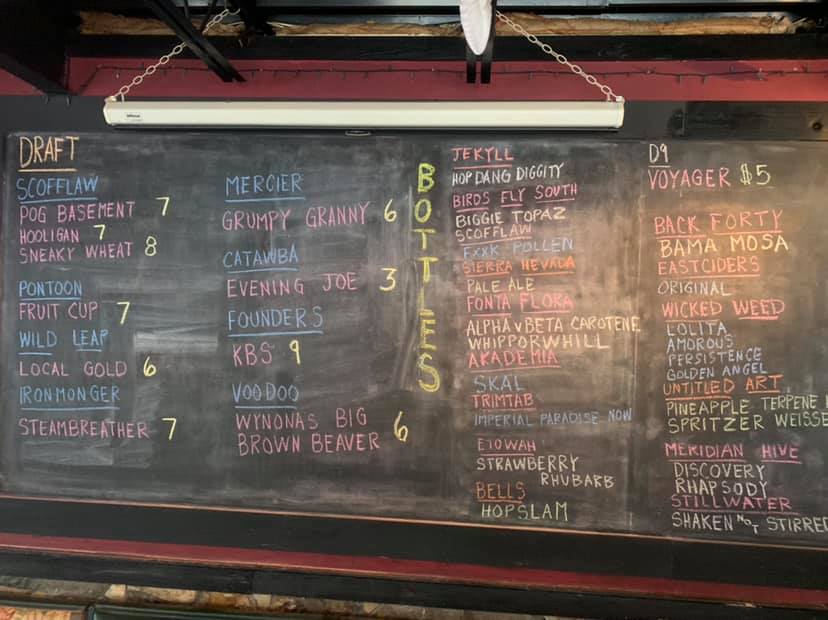 DRAFT
SCOFFLAW
POG BASEMENT 7
HOOLIGAN 7
SNEAKY WHEAT 8
PONTOON
FRUIT CUP 7
WILD LEAP
LOCAL GOLD 6
IRONMONGER
STEAMBREATHER 7
MERCIER
GRUMPY GRANNY 6
CATAWBA
EVENING JOE 3
FOUNDERS
KBS 9
VOODOO
WYNONAS BIG
BROWN BEAVER 6
BOTTLES
JEKYLL
HOP DANG DIGGITY
BIRDS FLY SOUTH
BIGGIE TOPAZ
SCOFFLAW
FXXK POLLEN
SIERRA NEVADA
PALE ALE
FONTA FLORA
ALPHA V BETA CAROTENE
WHIPPORWHILL
AKADEMIA
SKAL
TRIMTAB
IMPERIAL PARADISE NOW
ETOWAH
STRAWBERRY
RHUBARB
BELLS
HOPSLAM
D9
VOYAGER $5
BACK FORTY
BAMA MOSA
EASTCIDERS
ORIGINAL
WICKED WEED
LOLITA
AMOROUS
PERSISTENCE
GOLDEN ANGEL
UNTITLED ART
PINEAPPLE TERPENE
SPRITZER WEISSE
MERIDIAN HIVE
DISCOVERY
RHAPSODY
STILLWATER
SHAKEN NOT STIRRED